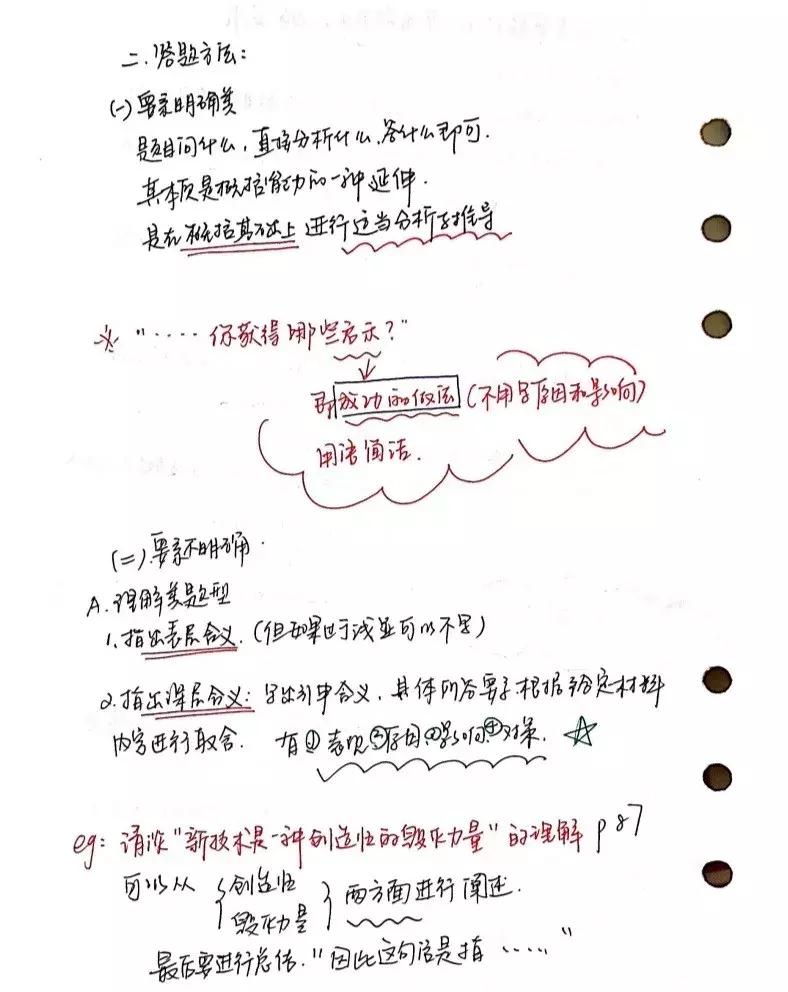 二.答题方法：
(一)要素明确类
题目问什么，直接分析什么.答什么即可.
其本质是概括能力的一种延伸.
是在概括基础上进行适当分析和推导
※ "····· 你获得哪些启示？"
↓
即成功的做法(不用写原因和影响)
用语简洁.
(二).要素不明确.
A.理解类题型
1.指出表层含义.(但如果过于浅显可以不写)
2.指出深层含义：写出引申含义，具体所答要素根据给定材料
内容进行取舍. 有①表现③原因②影响④对策. ☆
eg：请谈"新技术是一种创造性的毁灭力量"的理解 p87
可以从 {创造性 毁灭力量} 两方面进行阐述.
最后要进行总结."因此这句话是指 ·····"